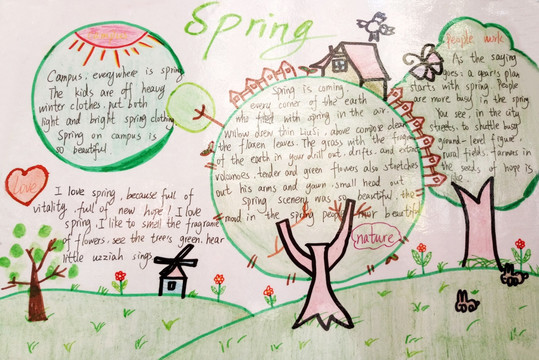 Spring
Campus, everywhere is spring
The kids are off heavy
winter clothes, put both
light and bright spring clothing
Spring on campus is
so beautiful
Spring is coming,
every corner of the earth
who with spring in the air.
Willow drew thin above compose clean
the flaxen leaves. The grass with the
of the earth in your drill out, drifts, and
volcanoes, tender and green flowers also stretches
out his arms and yawn. small head out
Spring scenery was so beautiful, the
mood in the spring people their beautiful
People work
As the saying
goes: a year's plan
starts with spring. People
are more busy in the spring
You see, in the city
streets, to shuttle busy
ground-level figure.
rural fields, farmers in
the seeds of hope is
love
I love spring, because full of
vitality, full of new hope! I love
spring, I like to smell the fragrance
of flowers, see the trees green, hear
little uzziah sings
nature